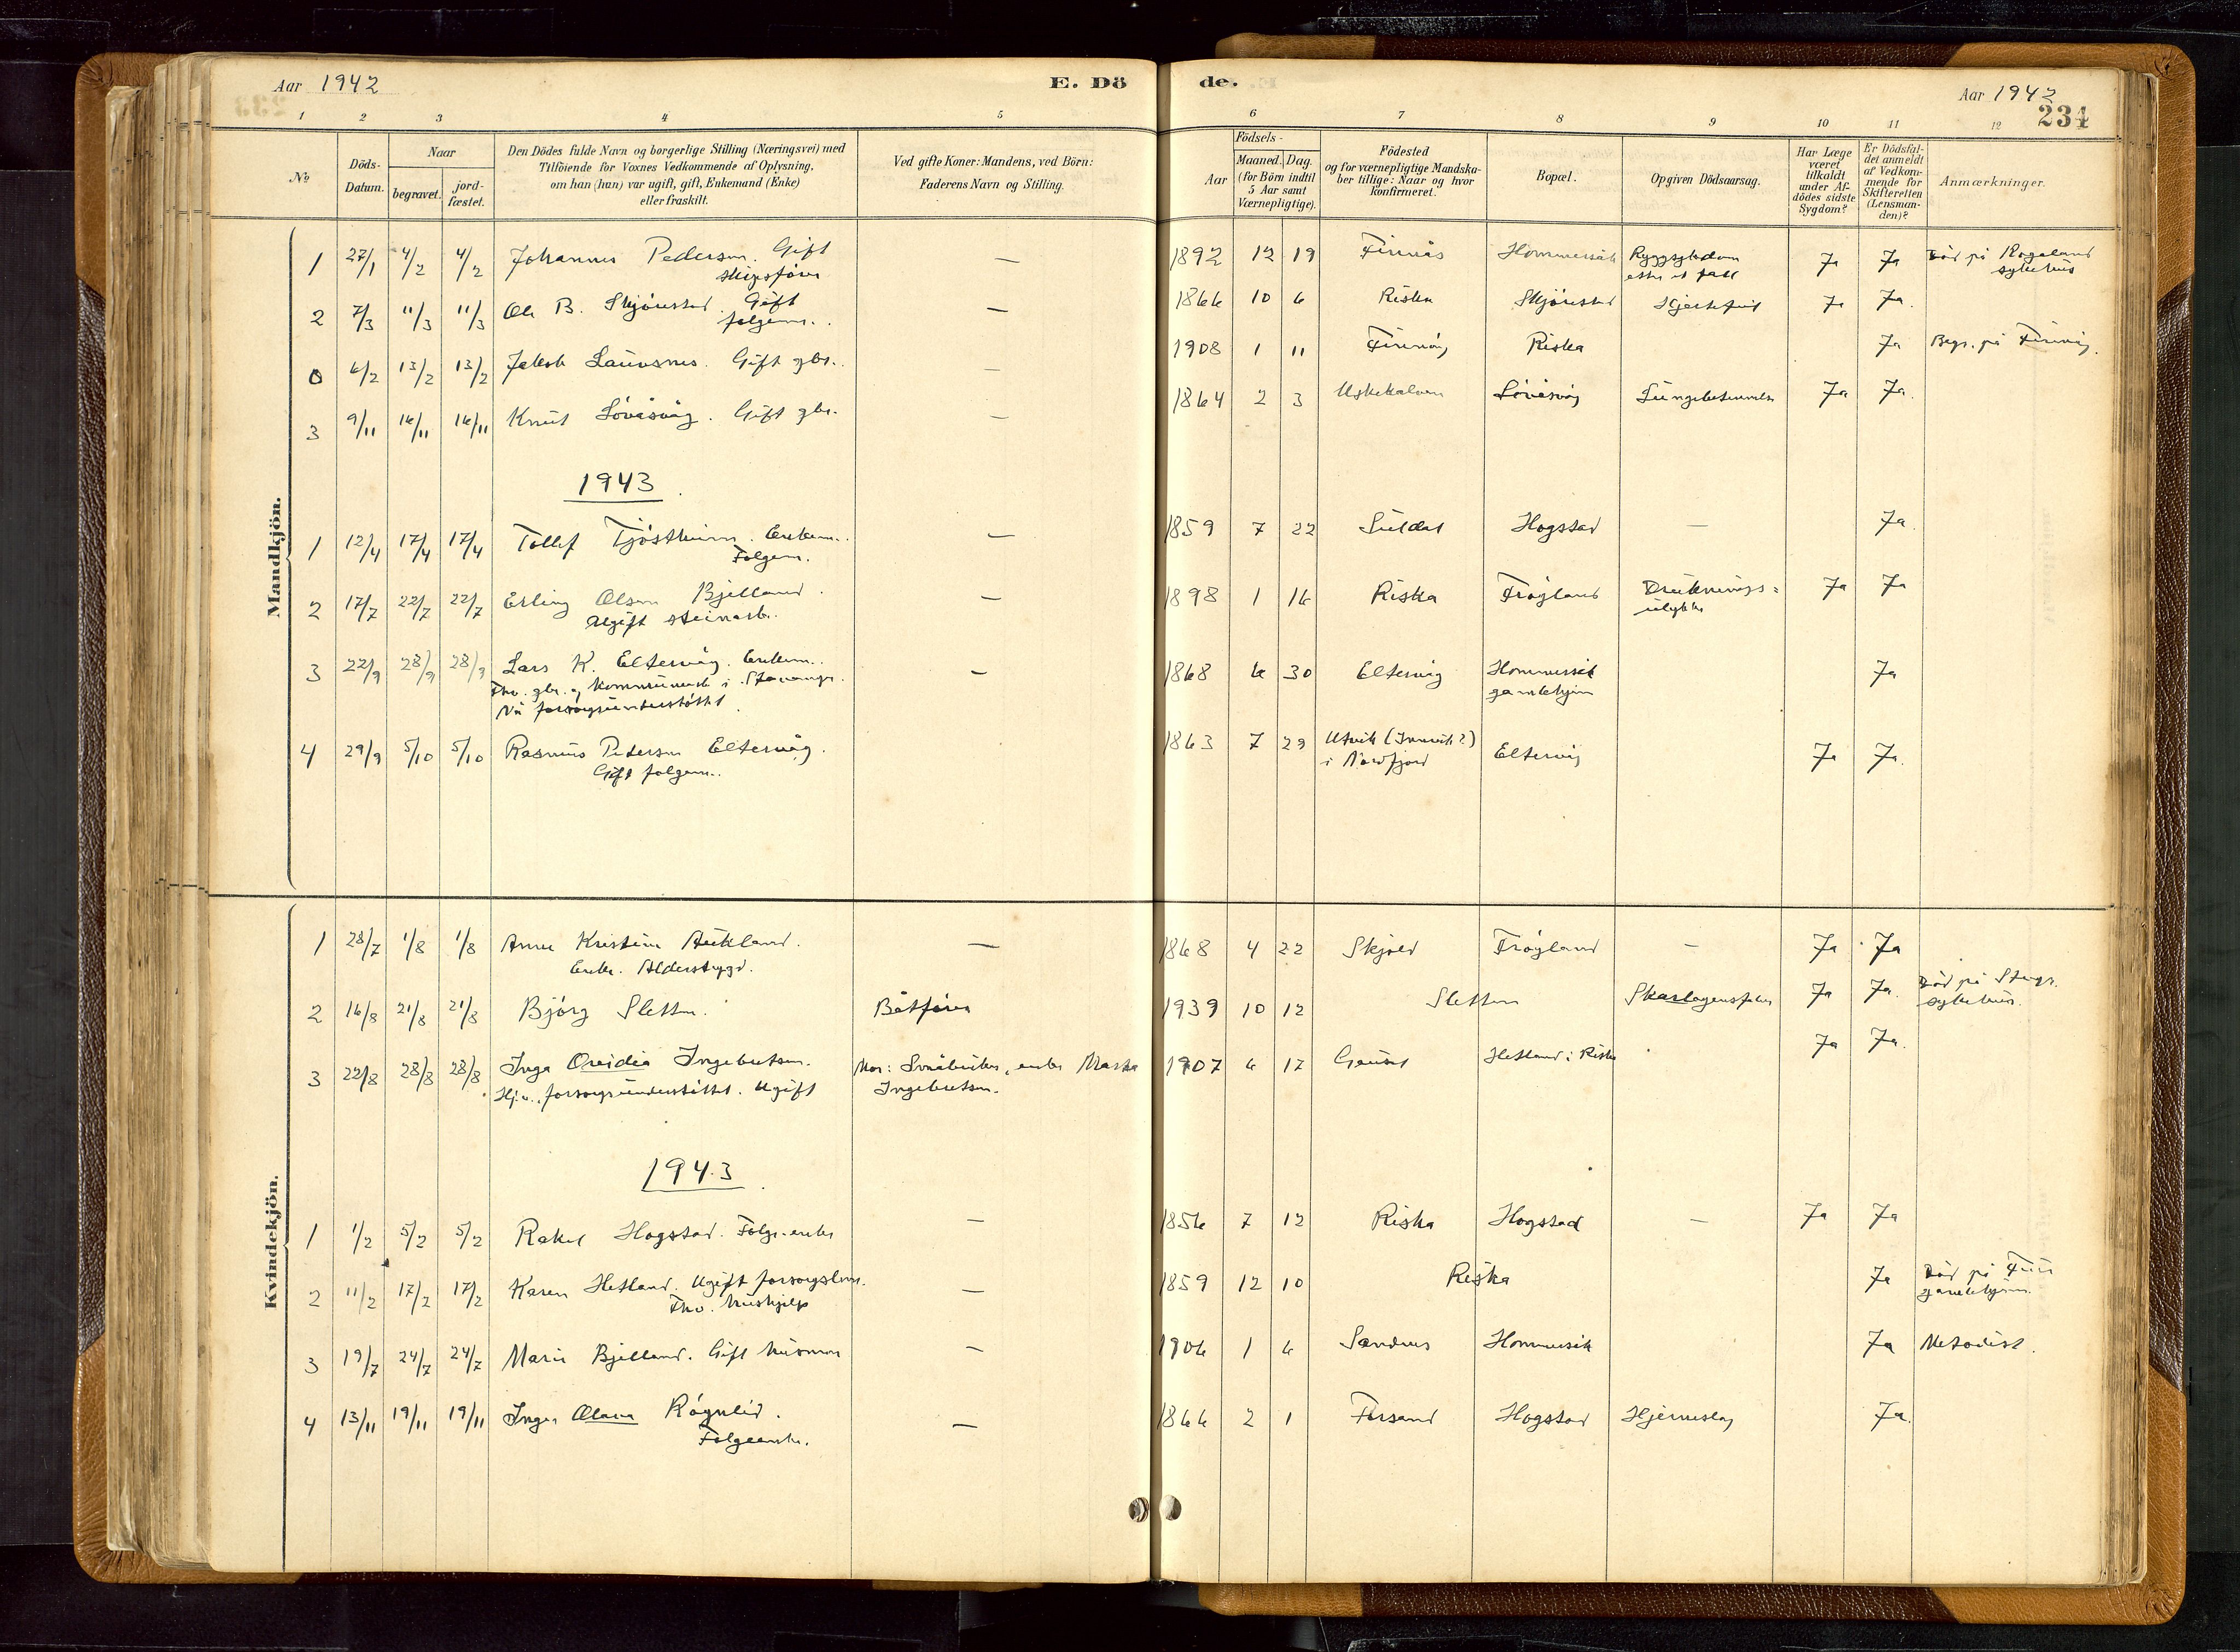 Aar 1942 E. Döde. Aar 1942
234
1 2 3 4 5 6 7 8 9 10 11 12
№
Döds-Datum.
Naar
begravet.
jordfæstet.
Den Dödes fulde Navn og borgerlige Stilling (Næringsvei) med
Tilföiende for Voxnes Vedkommende af Oplysning,
om han (hun) var ugift, gift, Enkemand (Enke)
eller fraskilt.
Ved gifte Koner: Mandens, ved Börn:
Faderens Navn og Stilling.
Aar
Födsels-
Maaned. Dag.
(for Börn indtil
5 Aar samt
Værnepligtige).
Födested
og for værnepligtige Mandskaber tillige: Naar og hvor
konfirmeret.
Bopæl.
Opgiven Dödsaarsag.
Har Læge
været
tilkaldt
under Afdödes sidste
Sygdom?
Er Dödsfaldet anmeldt
af Vedkommende for
Skifteretten
(Lensmanden)?
Anmærkninger.
Mandkjön.
1 27/1 4/2 4/2 Johannes Pedersen. Gift — 1892 12 19 Finnås Hommersåk Ryggsykdom Ja Ja Død på Rogaland
skipsfører etter et fall sykehus
2 7/3 11/3 11/3 Ole B. Skjørestad. Gift — 1866 10 6 Riska Skjørestad Hjertefeil Ja Ja.
folgem..
0 6/2 13/2 13/2 Jakob Lauvsnes. Gift gbr. — 1908 1 11 Finnøy Riska Ja Begr. på Finnøy.
3 9/11 16/11 16/11 Knut Lövåsvåg. Gift gbr. — 1864 2 3 Uskekalven Lövåsvåg Lungebetennelse Ja Ja.
1943
1 12/4 17/4 17/4 Tollef Tjöstheim. Enkem.. — 1859 7 22 Suldal Hogstad — Ja.
Folgem.
2 17/7 22/7 22/7 Erling Olsen Bjelland. — 1898 1 16 Riska Fröyland Drukningsulykke Ja Ja
Ugift steinarb.
3 22/9 28/9 28/9 Lars K. Eltervåg. Enkem.. — 1868 6 30 Eltervåg Hommersåk Ja
Fhv. gbr. og kommunearb i Stavanger. gamlehjem
Nå forsorgsunderstøttet.
4 29/9 5/10 5/10 Rasmus Pedersen Eltervåg. 1863 7 29 Utvik (Innvik?) Eltervåg Ja Ja.
Gift folgem.. i Nordfjord
Kvindekjön.
1 28/7 1/8 1/8 Anne Kristine Aukland. — 1868 4 22 Skjold Fröyland — Ja Ja
Enke. Alderstrygd.
2 16/8 21/8 21/8 Björg Sletten. Båtfører 1939 10 12 Sletten Skarlagensfeber Ja Ja. Død på Stvgr. sykehus.
3 22/8 28/8 28/8 Inga Ovidia Ingebretsen. Mor: Småbruker, enke Marta 1907 6 17 Gausel Hetland i Riska Ja Ja.
Hj.v. forsorgsunderstöttet. Ugift Ingebretsen.
1943
1 1/2 5/2 5/2 Rakel Hogstad. Folge-enke — 1856 7 12 Riska Hogstad — Ja Ja
2 11/2 17/2 17/2 Karen Hetland. Ugift forsorgslem. — 1859 12 10 Riska Ja Død på
Fhv. hushjelp gamlehjem.
3 19/7 24/7 24/7 Marie Bjelland. Gift husmor — 1906 1 6 Sandnes Hommersåk Ja Metodist.
4 13/11 19/11 19/11 Inger Olava Rögnlid. — 1866 2 1 Forsand Hogstad Hjerneslag Ja.
Folgeenke.